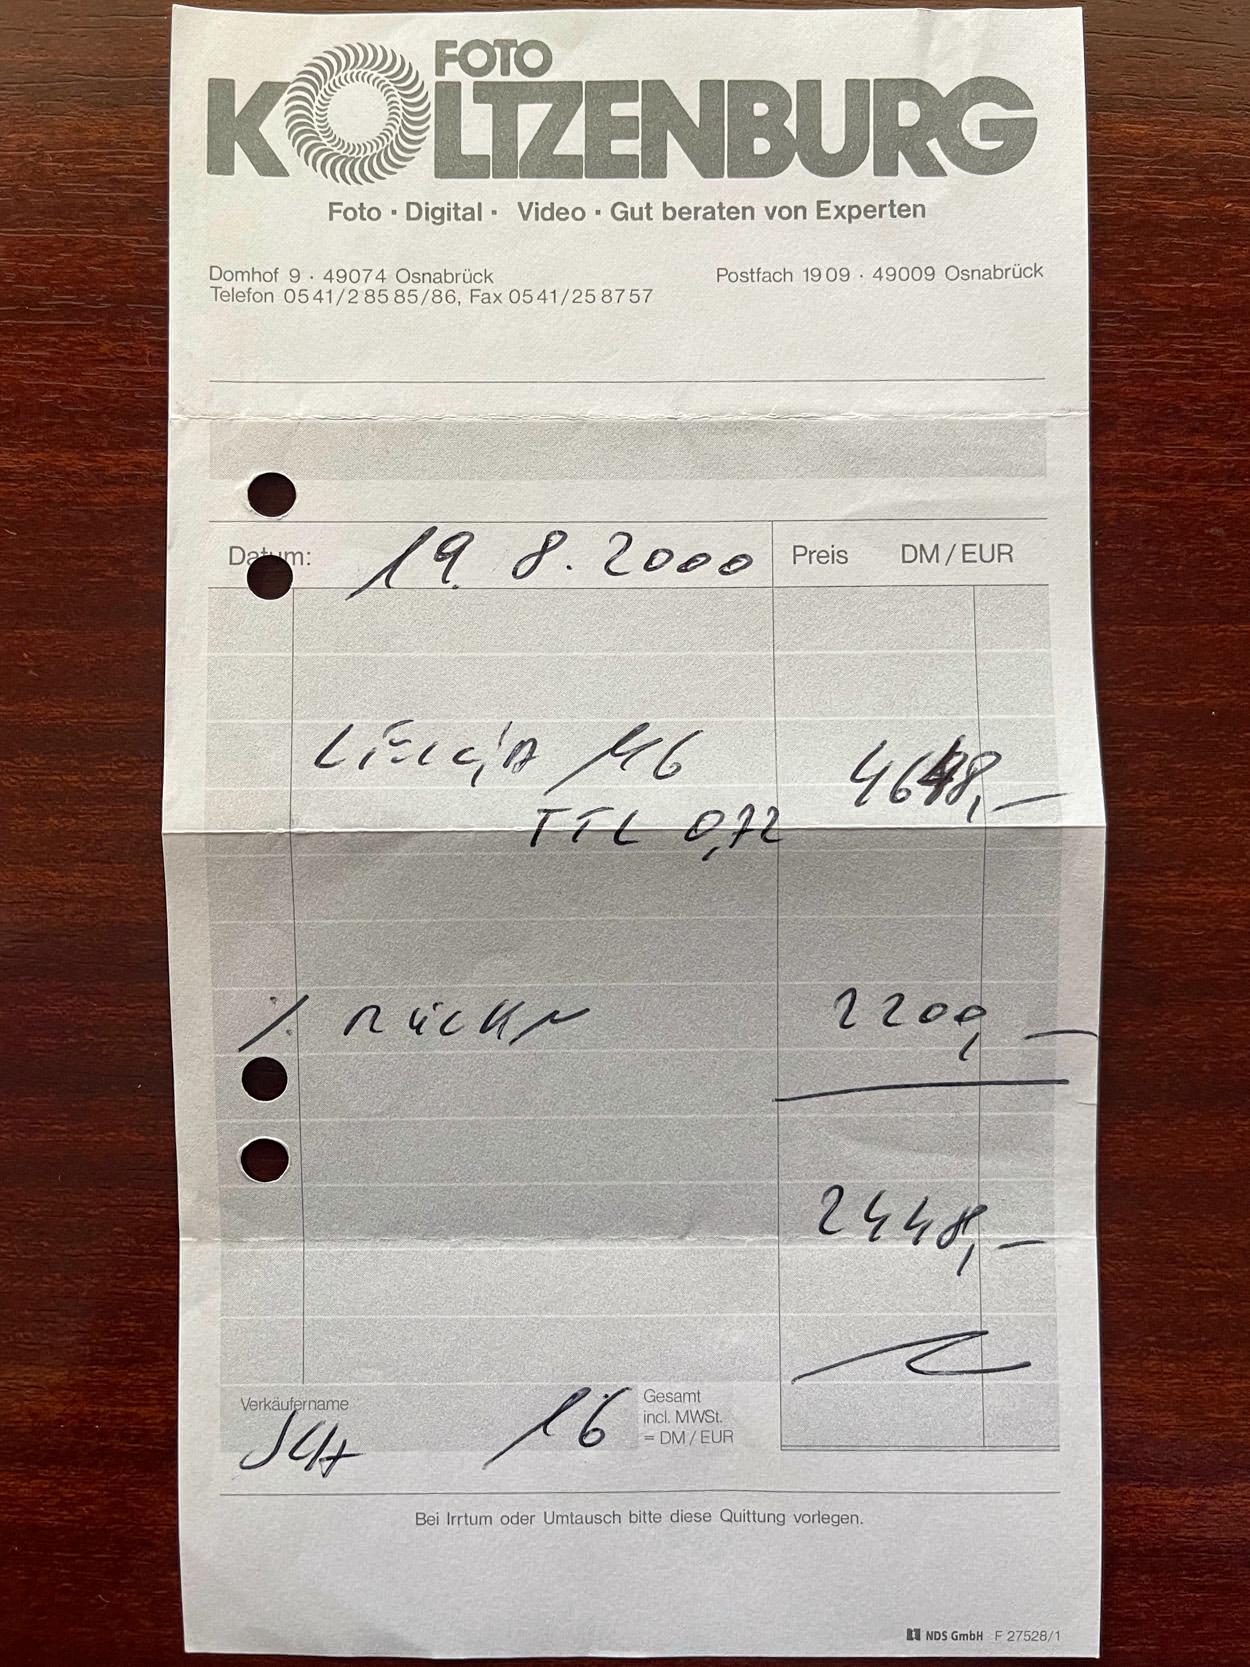 FOTO
KOLTZENBURG
Foto · Digital · Video · Gut beraten von Experten
Domhof 9 · 49074 Osnabrück
Postfach 19 09 · 49009 Osnabrück
Telefon 05 41/2 85 85/86, Fax 05 41/25 87 57
Datum: 19. 8. 2000 Preis DM / EUR
M6 4648,—
TTL 0,72
2200,—
2448,—
Verkäufername
16
Gesamt
incl. MWSt.
= DM / EUR
Bei Irrtum oder Umtausch bitte diese Quittung vorlegen.
NDS GmbH F 27528/1